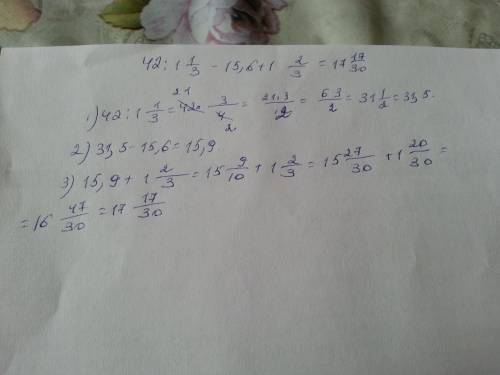 42 : 1 1/3 - 15,6 + 1 2/3 = 17 17/30
1) 42 : 1 1/3 = 42 · 3/4 = 21·3/2 = 63/2 = 31 1/2 = 31,5.
2) 31,5 - 15,6 = 15,9
3) 15,9 + 1 2/3 = 15 9/10 + 1 2/3 = 15 27/30 + 1 20/30 =
= 16 47/30 = 17 17/30